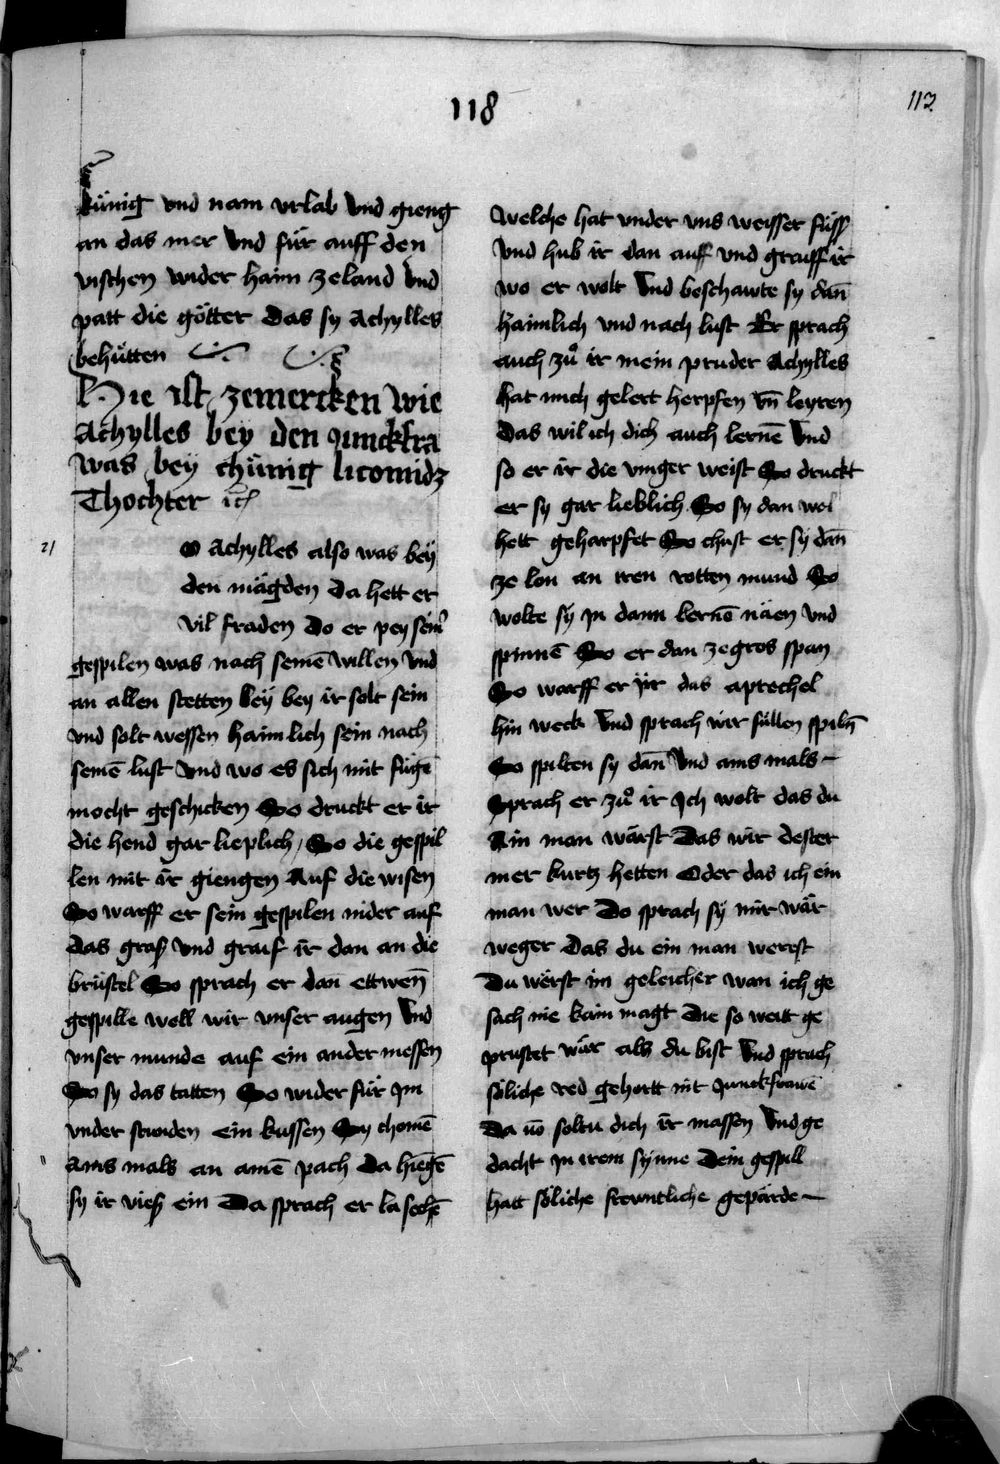 118
112
künig vnd nam vrlab vnd gieng
an das mer vnd für auff den
vischen wider haim ze land vnd
patt die götter das sy Achylles
behütten
Hie ist zemercken wie
Achylles bey den junckfra
was bey chünig licomidz
Thochter
21
o Achylles also was bey
den mägden da hett er
vil fraden do er pey sein̄
gespilen was nach seinē willen vnd
an allen stetten bey bey ir solt sein
vnd solt wessen haimlich sein nach
seinē lust vnd wo es sich mit fügē
mocht geschicken So druckt er ir
die hend gar lieplich / So die gespil
len mit ir giengen Auf die wisen
So warff er sein gespilen nider auf
das graß vnd graif ir dan an die
brüstel So sprach er dan̄ ettwen̄
gespille woll wir vnser augen vnd
vnser munde auf ein ander messen
So sy das tatten So wider für jm
vnder stunden ein kussen Sy chomē
ains mals an ainē pach da hiegē
sy ir vieß ein Da sprach er la sechē
Welche hat vnder vns weisser füss
vnd hub ir dan auff vnd graiff ir
wo er wolt vnd beschawte sy dan̄
haimlich vnd nach lust Er sprach
auch zů ir mein pruder Achylles
hat mich gelert herpfen vn̄ leyren
das wil ich dich auch lernē vnd
so er ir die vinger weist So druckt
er sy gar lieblich So sy dan wol
hett geharpfet So chust er sy dan̄
ze lon an iren rotten mund So
wolte sy jn dann lernē näen vnd
spinnē So er dan ze gros span
So warff er ir das aprechel
hin weck vnd sprach wir süllen spiln̄
So spilten sy dan̄ vnd ains mals
Sprach er zů ir Ich wolt das du
Ain man wärst Das wir dester
mer kurtz hetten Oder das ich ein
man wer Do sprach sy mir wär
weger das du ein man werest
Du wërst im geleicher wan ich ge
sach nie kain magt die so weit ge
prustet wär als du bist vnd sprach
söliche red gehortt nit junckfrawē
Da vō soltu dich ir massen vnd ge
dacht jn irem synne Dein gespill
hatt söliche frewntliche gepärde